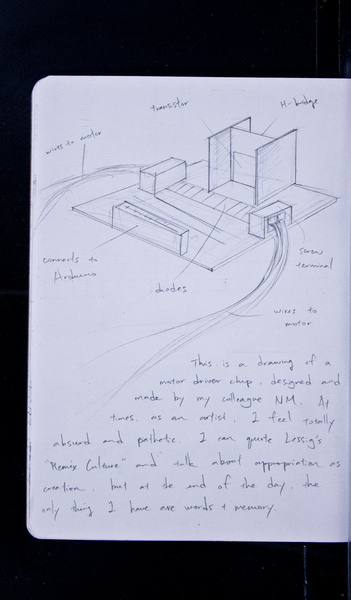 transistor
H-bridge
wires to motor
connects to
Arduino
diodes
screw
terminal
wires to
motor
This is a drawing of a
motor driver chip, designed and
made by my colleague NM. At
times, as an artist, I feel totally
absurd and pathetic. I can quote Lessig's
"Remix Culture" and talk about appropriation as
creation, but at the end of the day, the
only thing I have are words + memory.